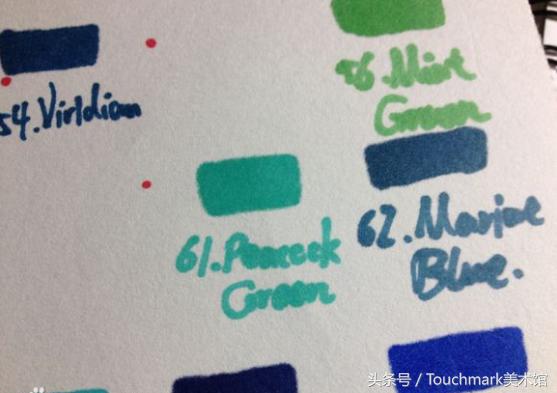 54.Viridian
56.Mint
Green
61.Peacock
Green
62.Marine
Blue.
头条号 / Touchmark美术馆